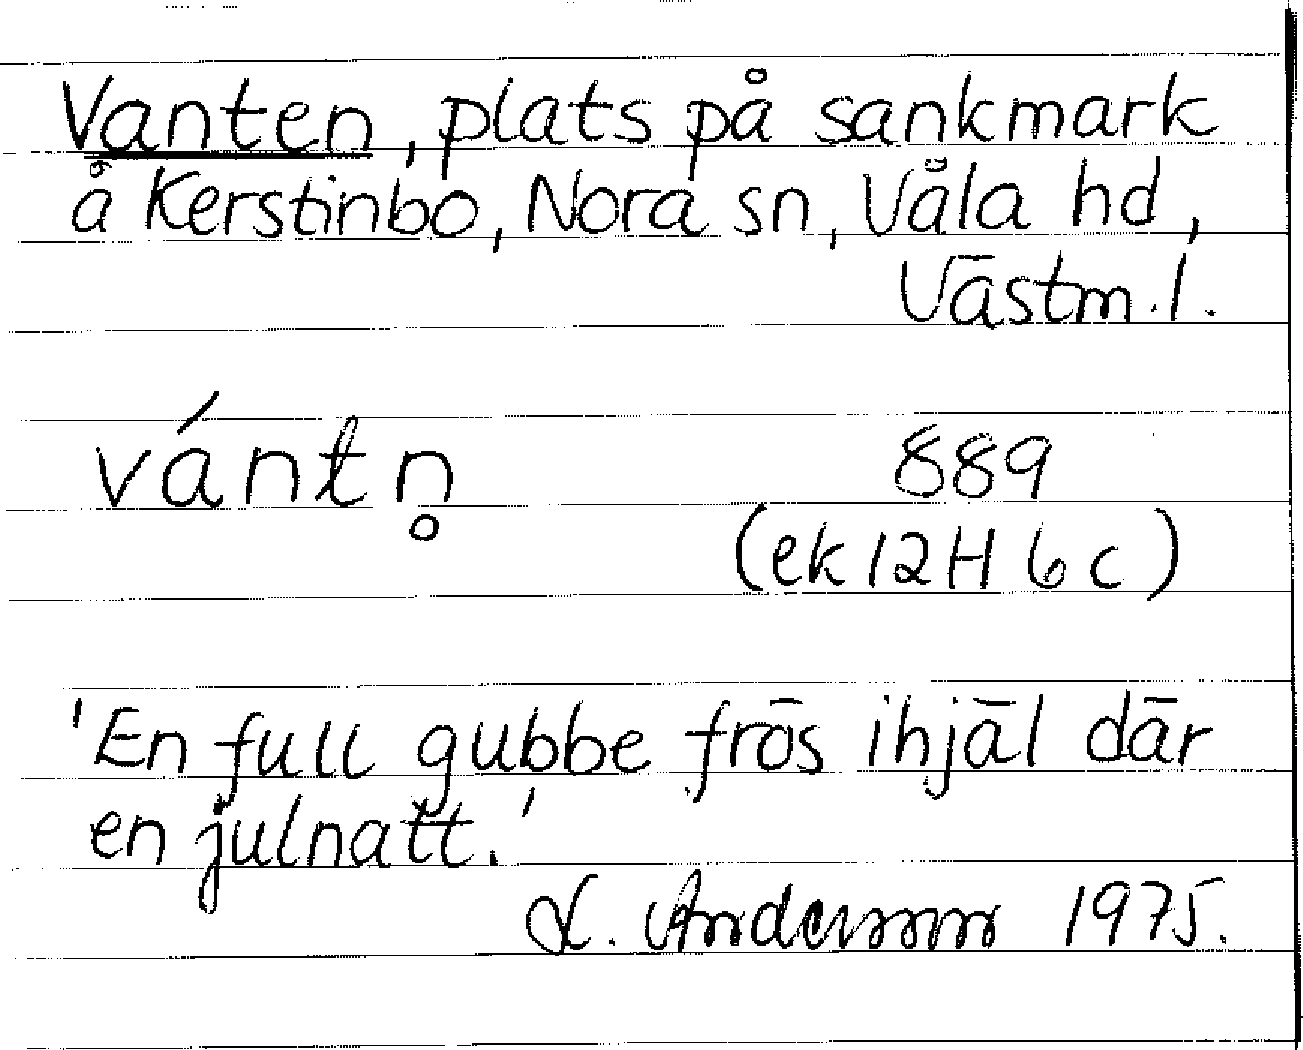 Vanten, plats på sankmark
å Kerstinbo, Nora sn, Våla hd,
Västm. l.
vántn̥ 889
(ek 12H 6c)
'En full gubbe frös ihjäl där
en julnatt.'
L. Andersson 1975.